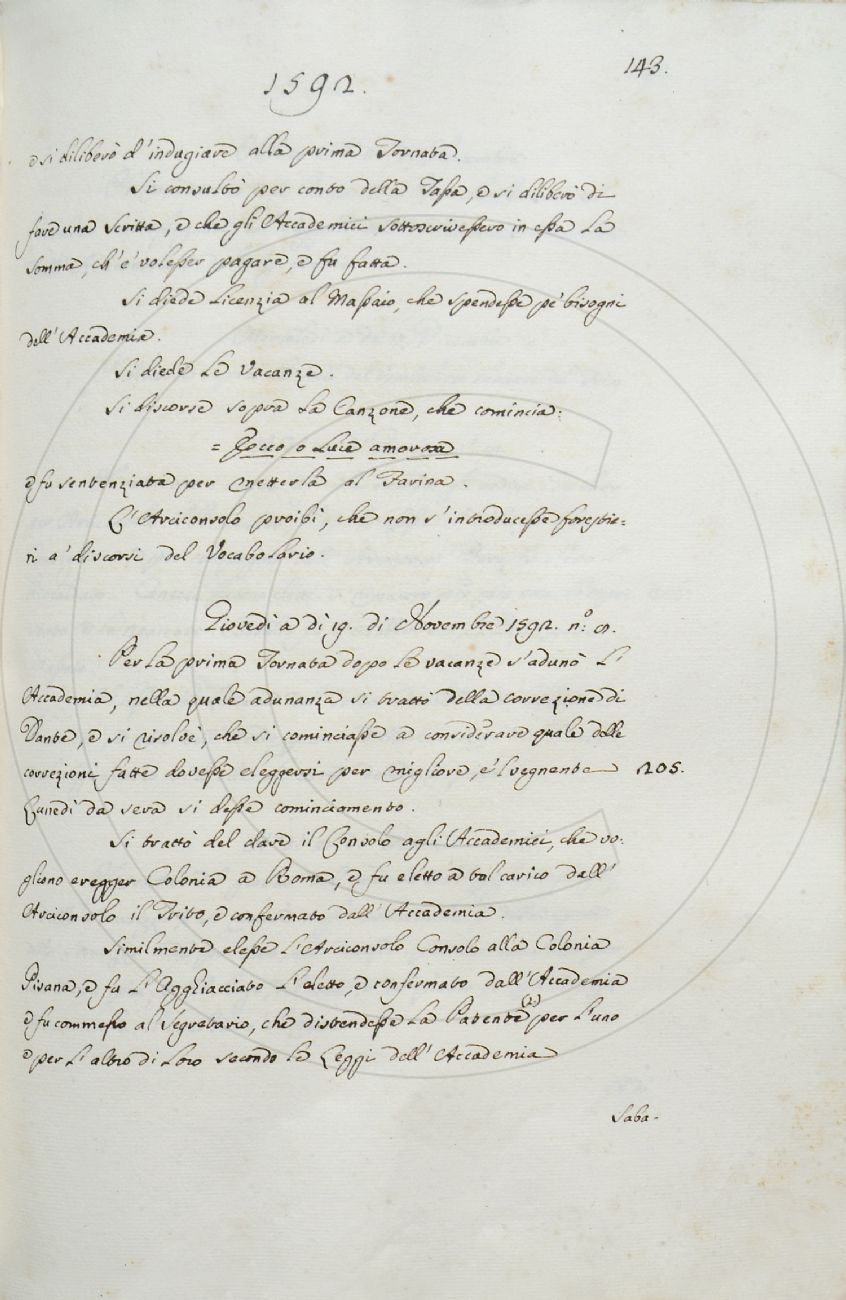 1592.
143.
e si diliberò d'indugiare alla prima Tornata.
Si consultò per conto della Tassa, e si diliberò di
fare una Scritta, e che gli Accademici sottoscrivessero in essa la
somma, ch'e' volesser pagare, e fu fatta.
Si diede licenzia al Massaio, che spendesse pe' bisogni
dell'Accademia.
Si diede le vacanze.
Si discorse sopra la Canzone, che comincia:
= Tocco o luce amorosa
e fu sentenziata per metterla al Farina.
L'Arciconsolo proibì, che non s'introducesse forestie=
ri a' discorsi del Vocabolario.
Giovedì a dì 19. di Novembre 1592. n.° 9.
Per la prima Tornata dopo le vacanze s'adunò l'
Accademia, nella quale adunanza si trattò della correzione di
Dante, e si risolvè, che si cominciasse a considerare quale delle
correzioni fatte dovesse eleggersi per migliore, e 'l vegnente 205.
Lunedì da sera si desse cominciamento.
Si trattò del dare il Consolo agli Accademici, che vo=
gliono eregger Colonia a Roma, e fu eletto a tal carico dall'
Arciconsolo il Trito, e confermato dall'Accademia.
Similmente elesse l'Arciconsolo Consolo alla Colonia
Pisana, e fu l'Agghiacciato l'eletto, e confermato dall'Accademia
e fu commesso al Segretario, che distendesse la Patente per l'uno
e per l'altro di loro secondo le Leggi dell'Accademia
Saba-